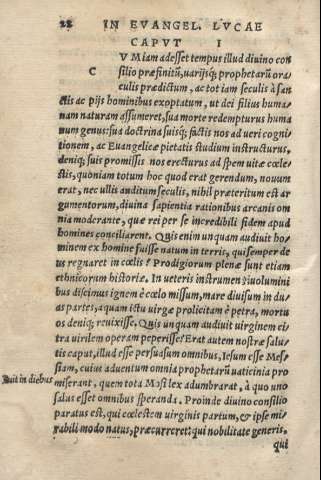 28 IN EVANGEL. LVCAE
CAPVT I
C V Miam adesset tempus illud diuino con
silio præfinitũ, uarijsq; prophetarũ ora
culis prædictum, ac tot iam seculis à san
ctis ac pijs hominibus exoptatum, ut dei filius huma
nam naturam assumeret, sua morte redempturus huma
num genus: sua doctrina suisq; factis nos ad ueri cogni
tionem, ac Euangelicæ pietatis studium instructurus,
deniq; suis promissis nos erecturus ad spem uitæ cœle
stis, quoniam totum hoc quod erat gerendum, nouum
erat, nec ullis auditum seculis, nihil præteritum est ar
gumentorum, diuina sapientia rationibus arcanis om
nia moderante, quæ rei per se incredibili fidem apud
homines conciliarent. Quis enim unquam audiuit ho
minem ex homine fuisse natum in terris, qui semper de
us regnaret in cœlis? Prodigiorum plenæ sunt etiam
ethnicorum historiæ. In ueteris instrumenti uolumini
bus discimus ignem è cœlo missum, mare diuisum in du
as partes, aquam ictu uirgæ prolicitam è petra, mortu
os deniq; reuixisse. Quis unquam audiuit uirginem ci
tra uirilem operam peperisse? Erat autem nostræ salu
tis caput, illud esse persuasum omnibus, Iesum esse Mes
siam, cuius aduentum omnia prophetarũ uaticinia pro
Fuit in diebus
miserant, quem tota Mosi lex adumbrarat, à quo uno
salus esset omnibus speranda. Proinde diuino consilio
paratus est, qui cœlestem uirginis partum, & ipse mi
rabili modo natus, præcurreret: qui nobilitate generis,
qui